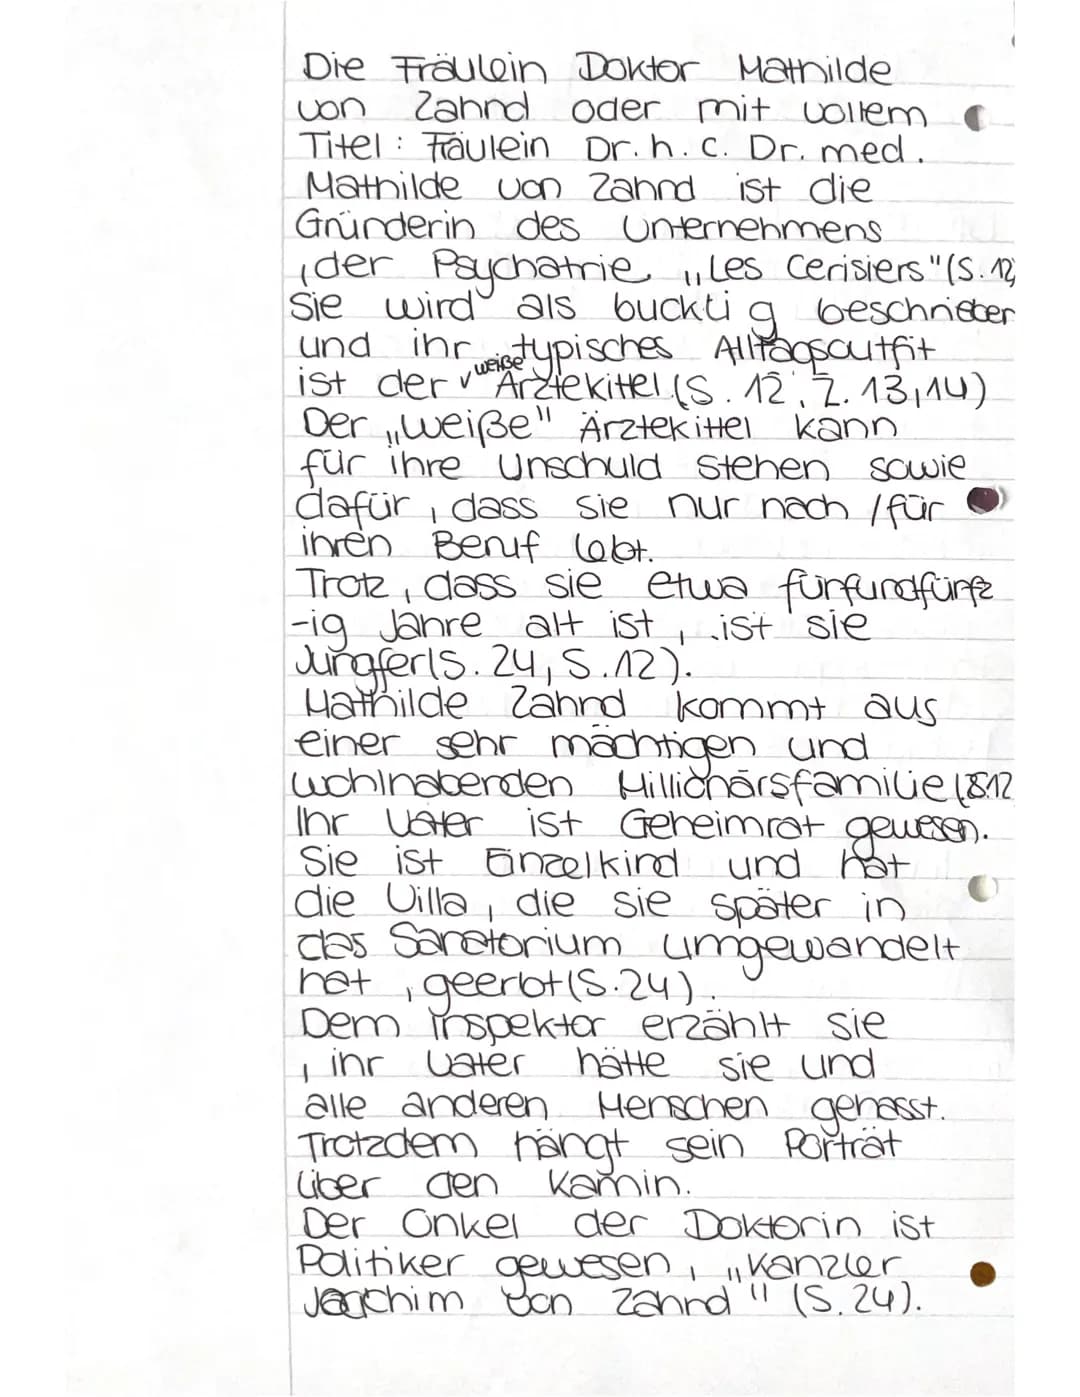 Die Fräulein Doktor Mathilde
von Zahnd oder mit vollem
Titel: Fäulein Dr. h. c. Dr. med.
Mathilde von Zahnd ist die
Gründerin des Unternehmens
, der Psychatrie, „Les Cerisiers" (S. 12)
Sie wird als bucktig beschrieben
und ihr typisches Alltagsoutfit
ist der weiße Ärztekittel (S. 12, Z. 13,14)
Der „weiße" Ärztekittel kann
für ihre Unschuld stehen sowie
dafür, dass sie nur nach /für
ihren Beruf lebt.
Trotz, dass sie etwa fünfundfünfz
-ig Jahre alt ist, ist sie
Jungfer (S. 24, S. 12).
Mathilde Zahnd kommt aus
einer sehr mächtigen und
wohlhabenden Millionärsfamilie (S12
Ihr Vater ist Geheimrat gewesen.
Sie ist Einzelkind und hat
die Villa, die sie später in
das Sanatorium umgewandelt
hat, geerbt (S. 24).
Dem Inspektor erzählt sie
, ihr Vater hätte sie und
alle anderen Menschen gehasst.
Trotzdem hängt sein Porträt
über den Kamin.
Der Onkel der Doktorin ist
Politiker gewesen, „Kanzler
Joachim von Zahnd" (S. 24).